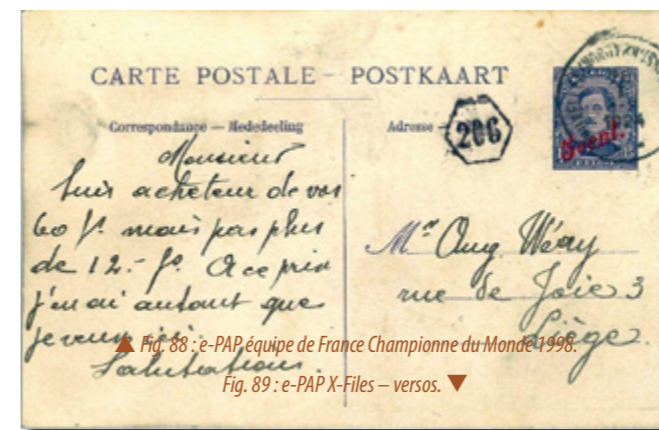 CARTE POSTALE - POSTKAART
Correspondance — Mededeeling
Adresse
206
5 cent.
Monsieur
Suis acheteur de vos
60 f. mais pas plus
de 12.- f. A ce prix
j'en ai autant que
je veux ici.
Salutations.
Mr Aug Wéay
rue de Joie 3
Liège.
▲ Fig. 88 : e-PAP équipe de France Championne du Monde 1998.
Fig. 89 : e-PAP X-Files – versos. ▼